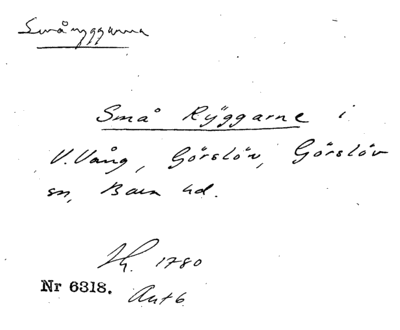 Småryggarna
Små Ryggarne i
V. Vång, Görslöv, Görslöv
sn, Bara hd.
1780
Nr 6318. Ant 6